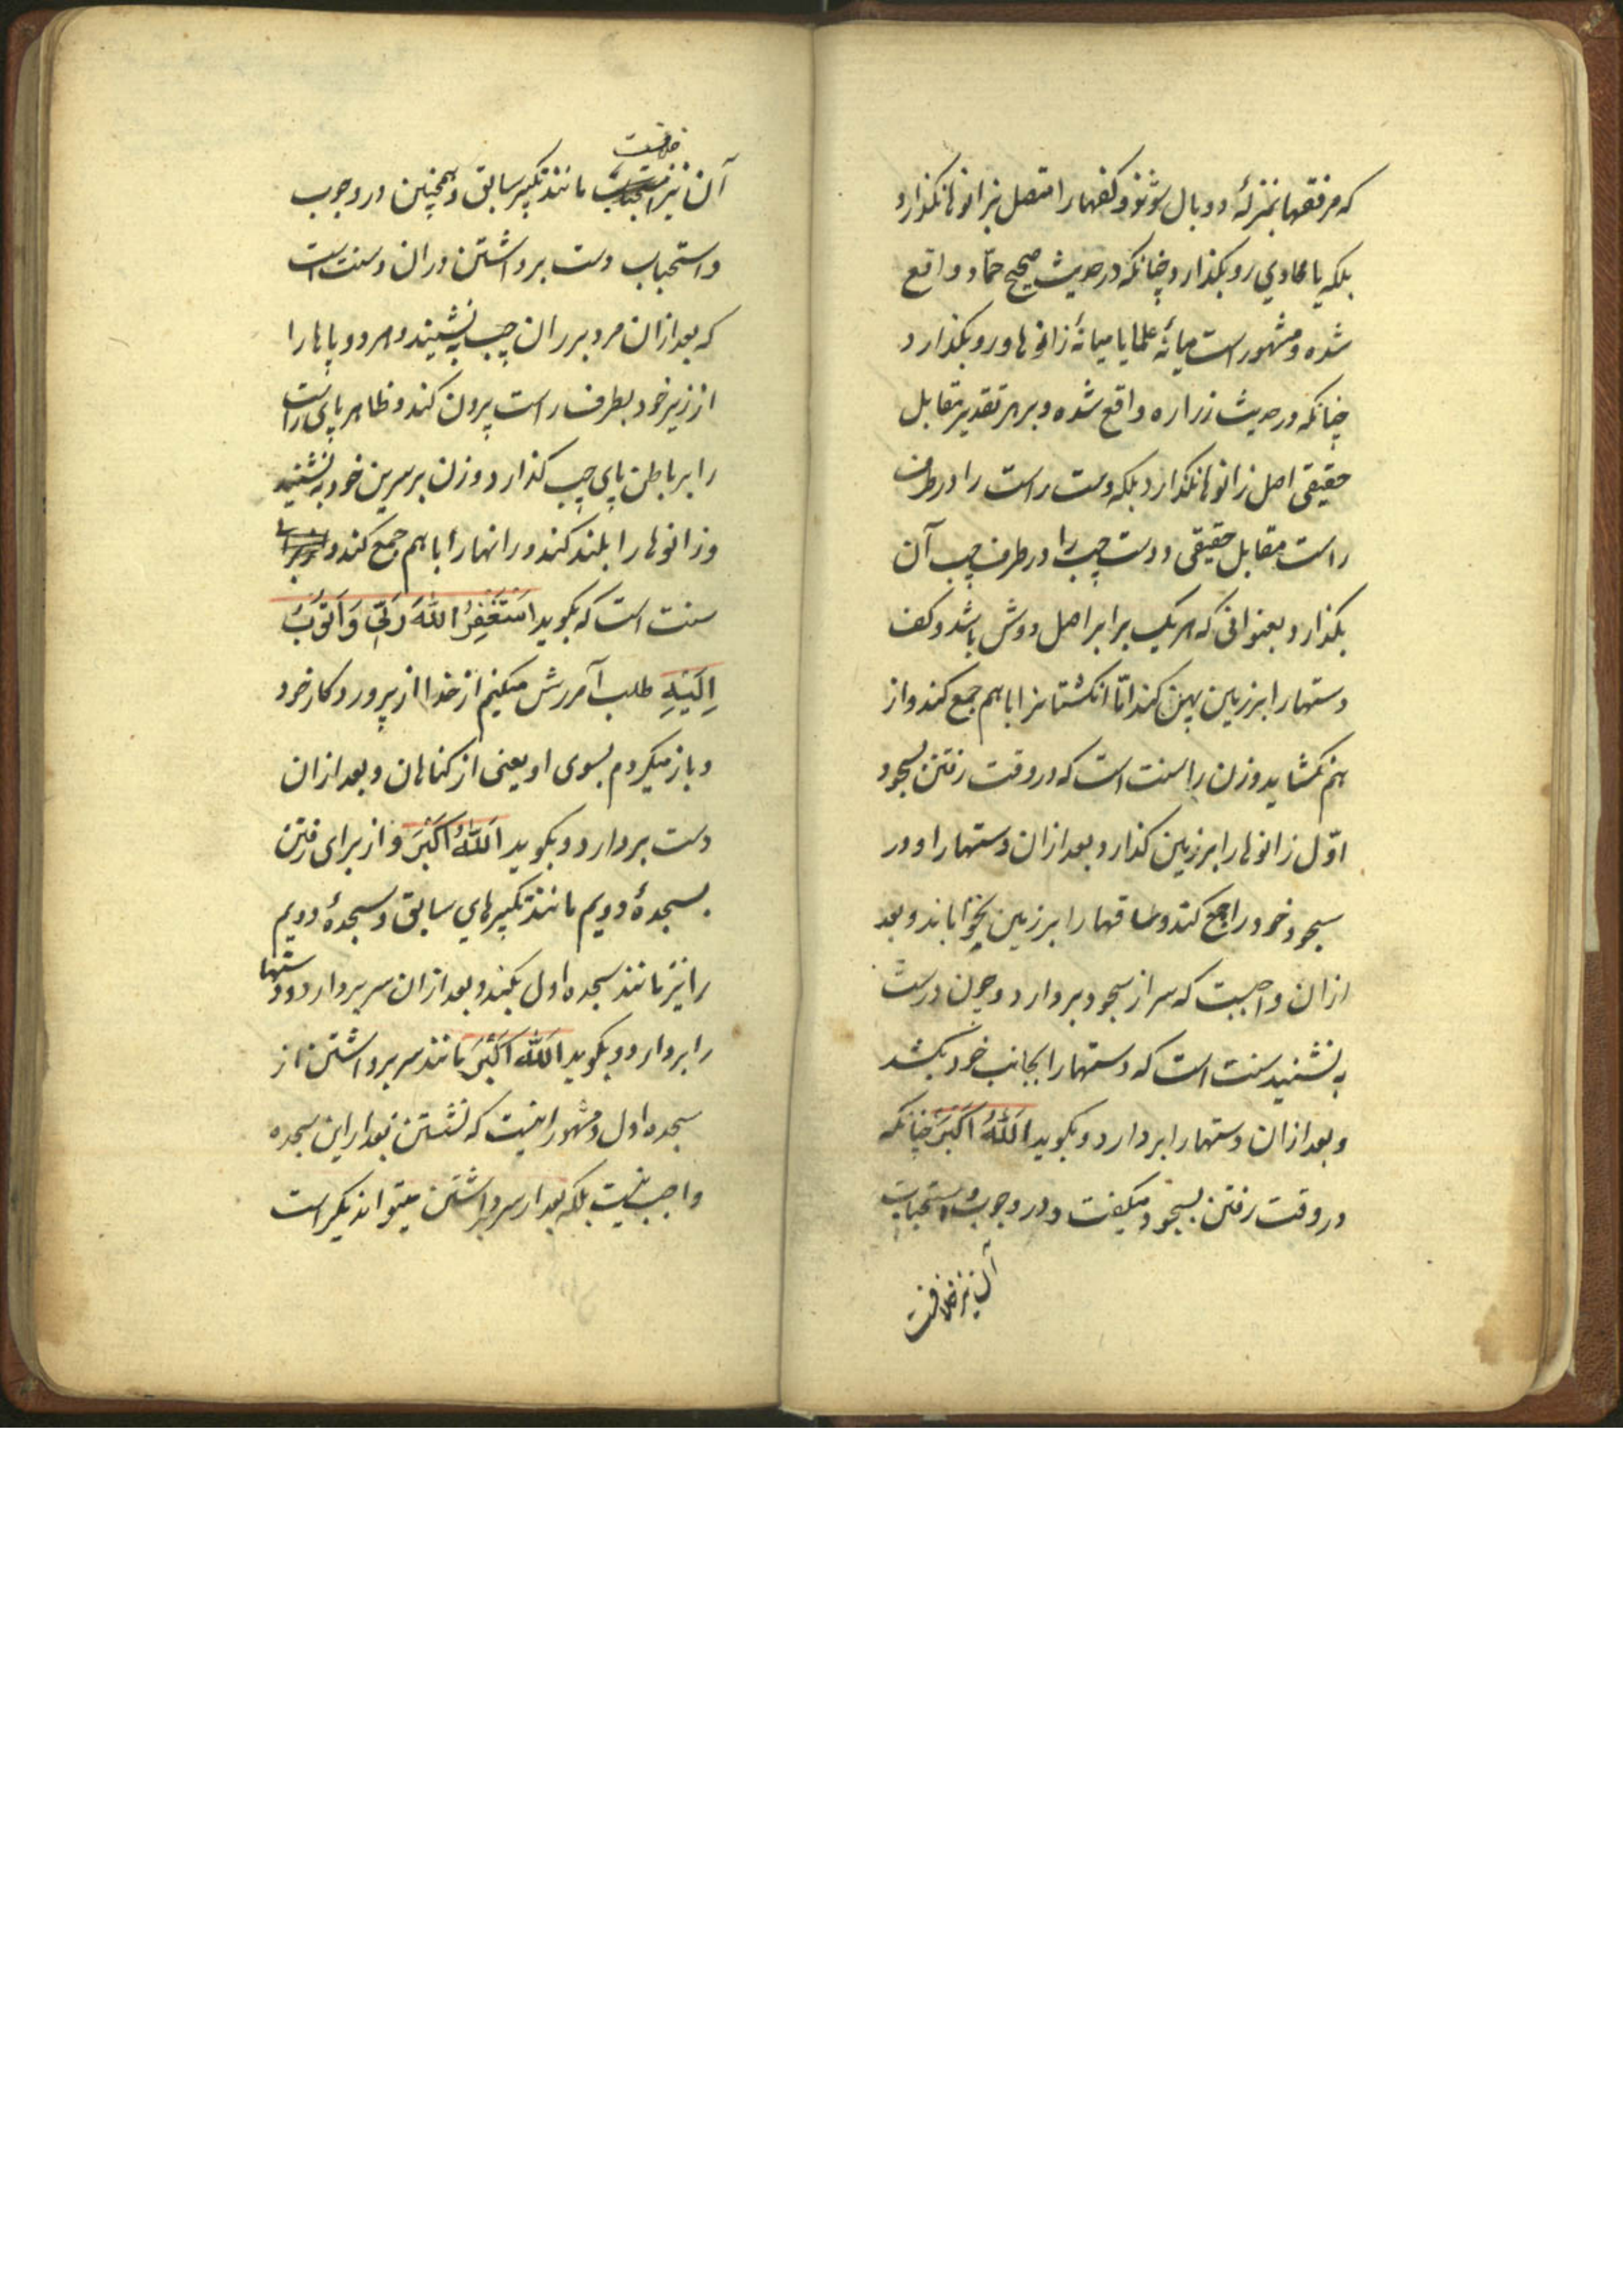 که مرفقها بمنزلهٔ دو بال شوند و کفها را متصل بزانوها نگذارد
بلکه یا محاذی رو بگذارد چنانکه در حدیث صحیح حماد واقع
شده و مشهور است میانهٔ علما یا میانهٔ زانوها و رو بگذارد
چنانکه در حدیث زراره واقع شده و بر هر تقدیر مقابل
حقیقی اصل زانوها نگذارد بلکه دست راست را در طرف
راست مقابل حقیقی و دست چپ را در طرف چپ آن
بگذارد بعنوانی که هر یک برابر اصل دوش باشد و کف
دستها را بر زمین پهن کند امّا انگشتانرا باهم جمع کند و از
هم نگشاید و زن را سنت است که در وقت رفتن بسجود
اوّل زانوها را بر زمین گذارد بعد از آن دستها را و در
سجود خود را جمع کند و ساقها را بر زمین بخواباند و بعد
ازان واجبست که سر از سجود بردارد و چون درست
به نشیند سنت است که دستها را بجانب خود بکشد
و بعد ازان دستها را بردارد و بگوید اَللّٰهُ اَکْبَرَ چنانکه
در وقت رفتن بسجود میگفت و در وجوب و استحباب
آن نیز خلافست
خلافست
آن نیز مانند تکبیر سابق و همچنین در وجوب
و استحباب دست برداشتن دران و سنت است
که بعد ازان مرد بر ران چپ به نشیند و هر دو پاها را
از زیر خود بطرف راست بیرون کند و ظاهر پای راست
را بر باطن پای چپ گذارد و زن بر سرین خود به نشیند
و زانوها را بلند کند و رانها را باهم جمع کند و
سنت است که بگوید اَسْتَغْفِرُ اللّٰهَ رَبّی وَ اَتُوبُ
اِلَیْهِ طلب آمرزش میکنم از خدا از پروردکار خود
و باز میگردم بسوی او یعنی از کناهان و بعد ازان
دست بردارد و بگوید اَللّٰهُ اَکْبَرَ و از برای رفتن
بسجدهٔ دویم مانند تکبیرهای سابق و سجدهٔ دویم
را نیز مانند سجده اول بکند و بعد ازان سر بردارد و دستها
را بردارد و بگوید اَللّٰه اَکْبَرَ مانند سر برداشتن از
سجده اول و مشهور اینست که نشستن بعد از این سجده
واجب نیست بلکه بعد از سر برداشتن میتواند یکراست